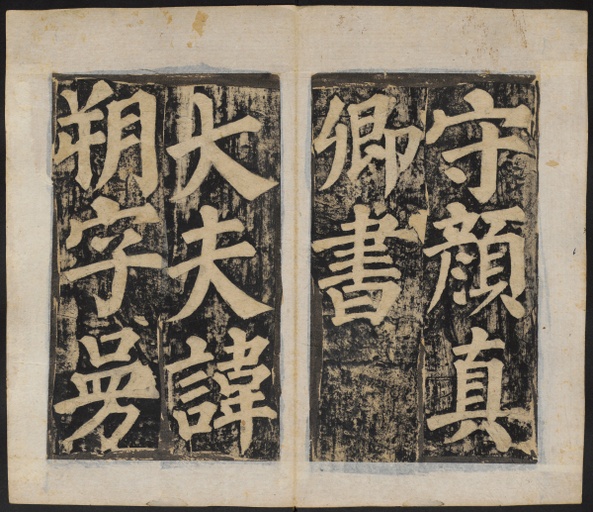 守顏真
卿書
大夫諱
朔字曼